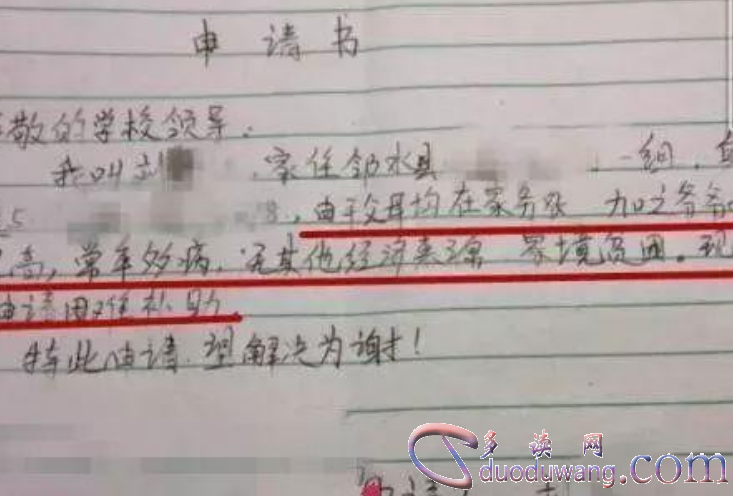 申请书
敬的学校领导.
我叫刘 , 家住邻水县 一组,
, 由于父母均在家务农 加之爷爷
高, 常年多病, 无其他经济来源 家境贫困。现
申请困难补助.
特此申请. 望解决为谢!
多读网
duoduwang.com
申请